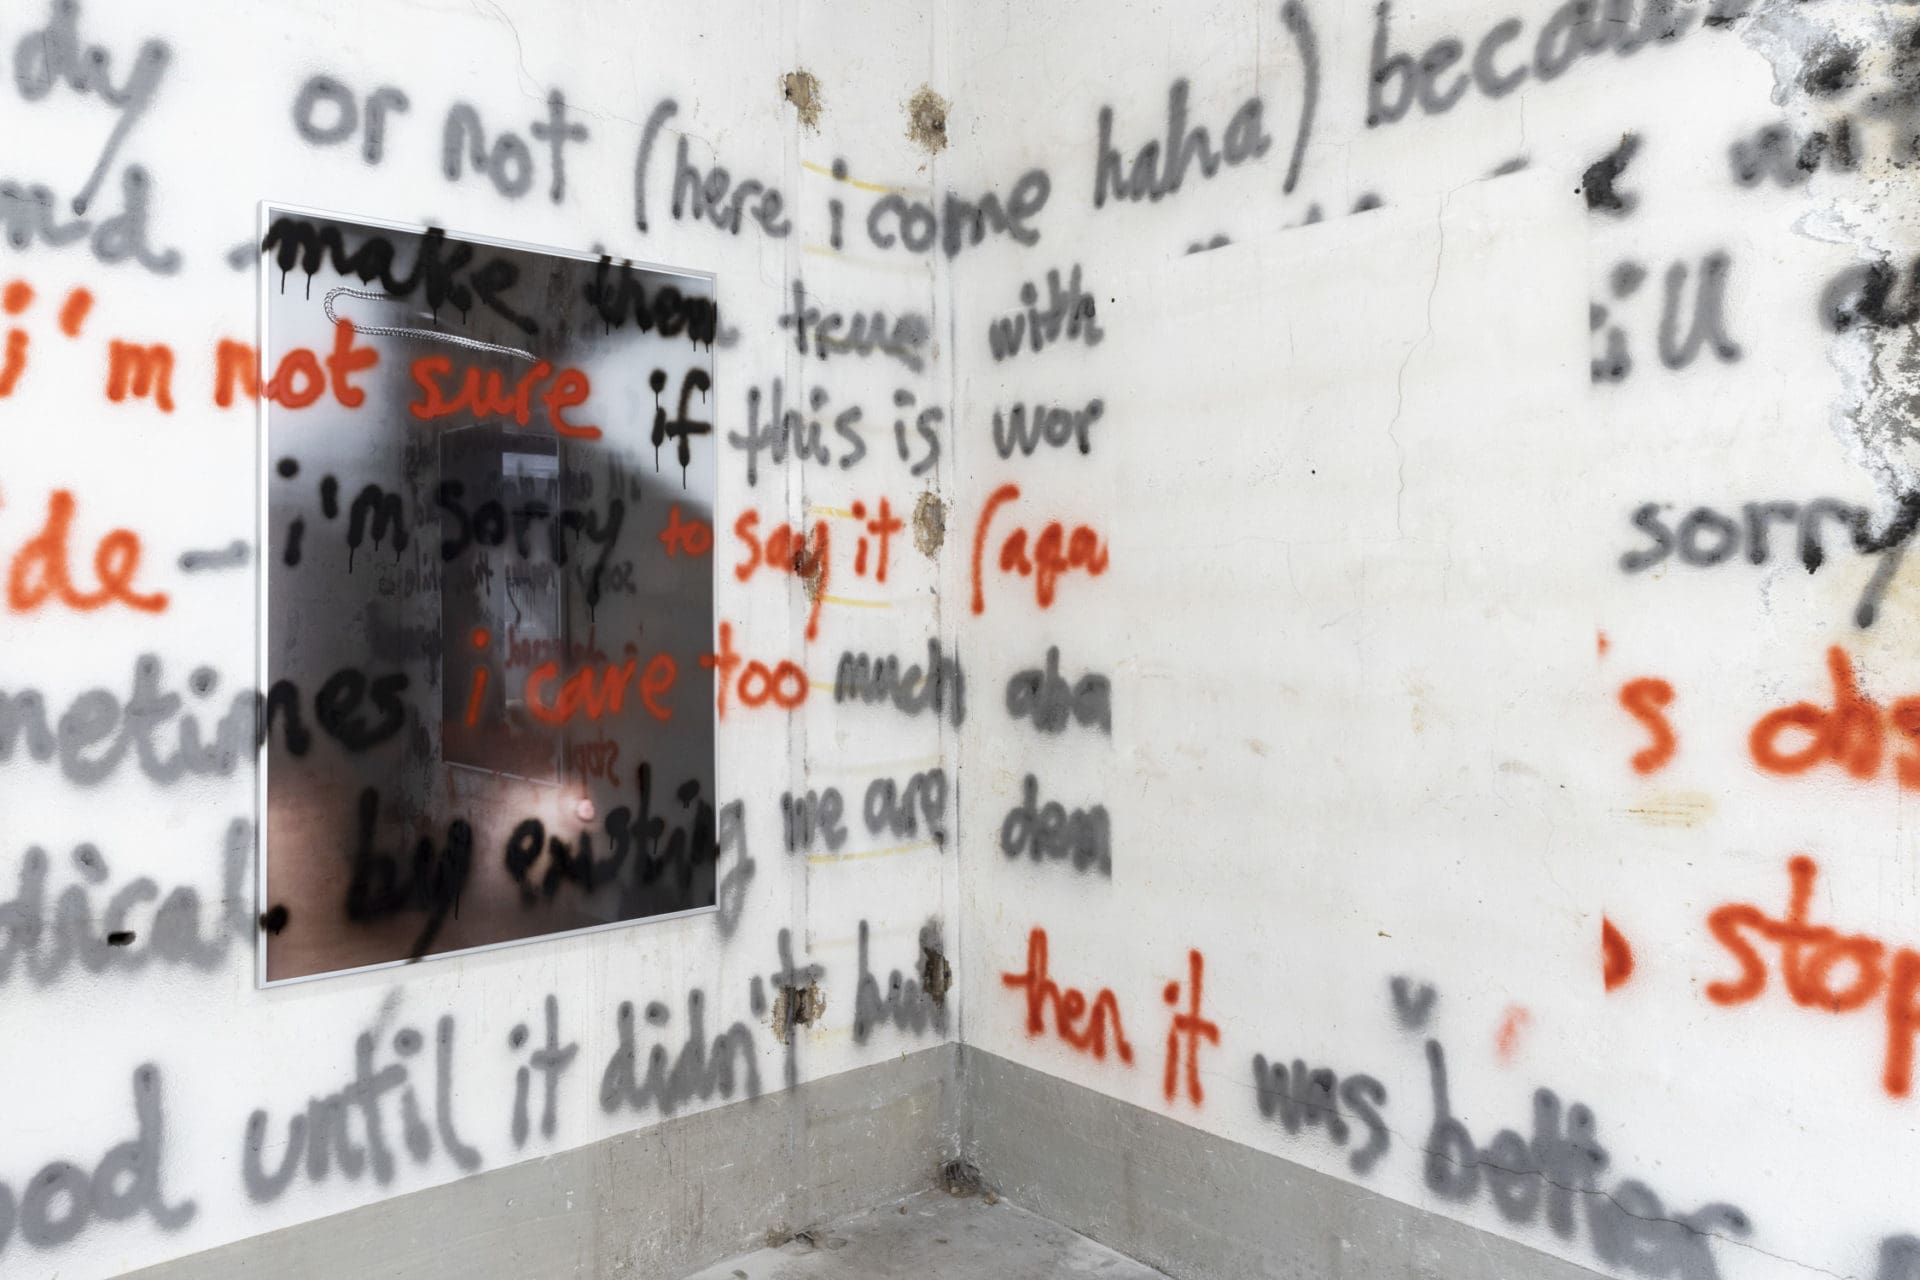 dy or not (here i come haha) becau
nd - make them true with ill
i'm not sure if this is wor
de - i'm sorry to say it (aga sorry
metimes i care too much aba s obs
dical. by existing we are dem stop
ood until it didn't but then it was better